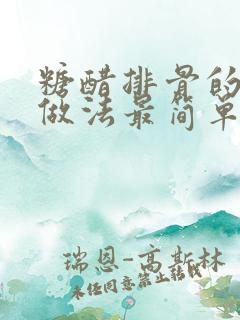 糖醋排骨的
做法最简单
瑞恩-高斯林
未经同意禁止转载